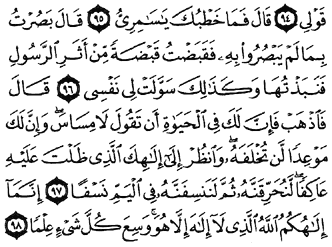 قَوْلِي ۝٩٤ قَالَ فَمَا خَطْبُكَ يَٰسَٰمِرِيُّ ۝٩٥ قَالَ بَصُرْتُ
بِمَا لَمْ يَبْصُرُوا۟ بِهِۦ فَقَبَضْتُ قَبْضَةً مِّنْ أَثَرِ ٱلرَّسُولِ
فَنَبَذْتُهَا وَكَذَٰلِكَ سَوَّلَتْ لِي نَفْسِي ۝٩٦ قَالَ
فَٱذْهَبْ فَإِنَّ لَكَ فِي ٱلْحَيَوٰةِ أَن تَقُولَ لَا مِسَاسَ ۖ وَإِنَّ لَكَ
مَوْعِدًا لَّن تُخْلَفَهُۥ ۖ وَٱنظُرْ إِلَىٰٓ إِلَٰهِكَ ٱلَّذِي ظَلْتَ عَلَيْهِ
عَاكِفًا ۖ لَّنُحَرِّقَنَّهُۥ ثُمَّ لَنَنسِفَنَّهُۥ فِي ٱلْيَمِّ نَسْفًا ۝٩٧ إِنَّمَآ
إِلَٰهُكُمُ ٱللَّهُ ٱلَّذِي لَآ إِلَٰهَ إِلَّا هُوَ ۚ وَسِعَ كُلَّ شَيْءٍ عِلْمًا ۝٩٨